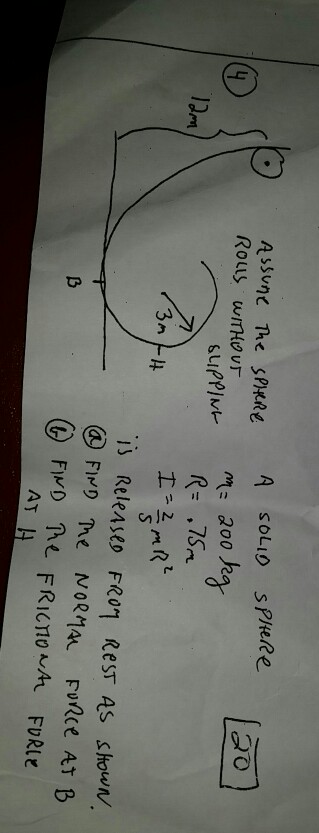 ④
12m
ASSUME THE SPHERE
ROLLS WITHOUT
SLIPPING
3m
H
B
20
A SOLID SPHERE
m = 200 kg
R = .75m
I = 2/5 mR²
is RELEASED FROM REST AS SHOWN.
ⓐ FIND THE NORMAL FORCE AT B
ⓑ FIND THE FRICTIONAL FORCE
AT H